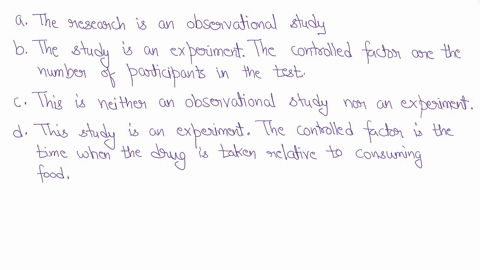 a. The research is an observational study
b. The study is an experiment. The controlled factor are the
number of participants in the test.
c. This is neither an observational study nor an experiment.
d. This study is an experiment. The controlled factor is the
time when the drug is taken relative to consuming
food.